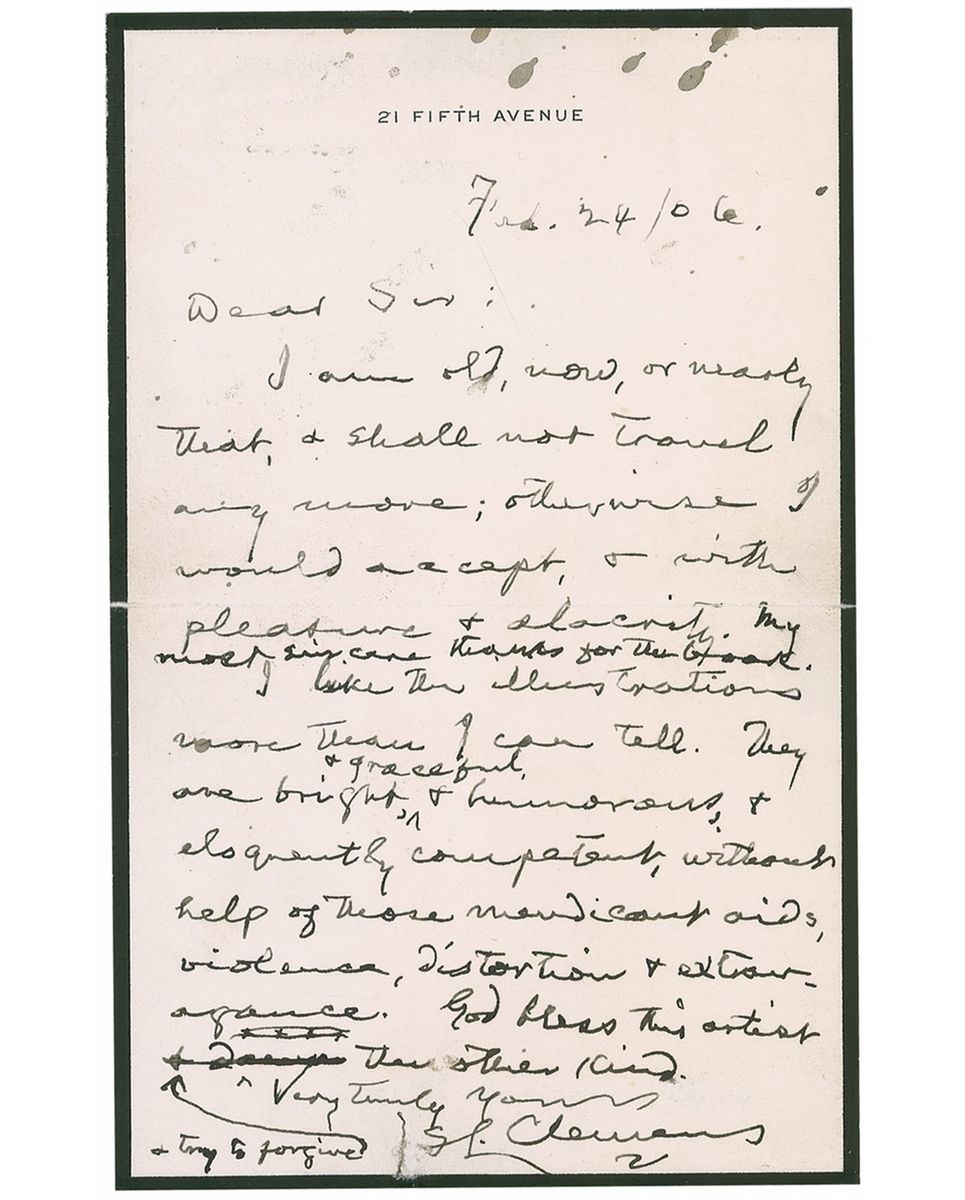 21 FIFTH AVENUE
Feb. 24/06.
Dear Sir:
I am old, now, or nearly
that, & shall not travel
any more; otherwise I
would accept, & with
pleasure & alacrity. My
most sincere thanks for the book.
I like the illustrations
more than I can tell. They
& graceful,
are bright, & humorous, &
eloquently competent, without
help of those mendicant aids,
violence, distortion & extrav-
agance. God bless this artist
& damn the other kind.
Very truly yours
SL. Clemens
& try to forgive